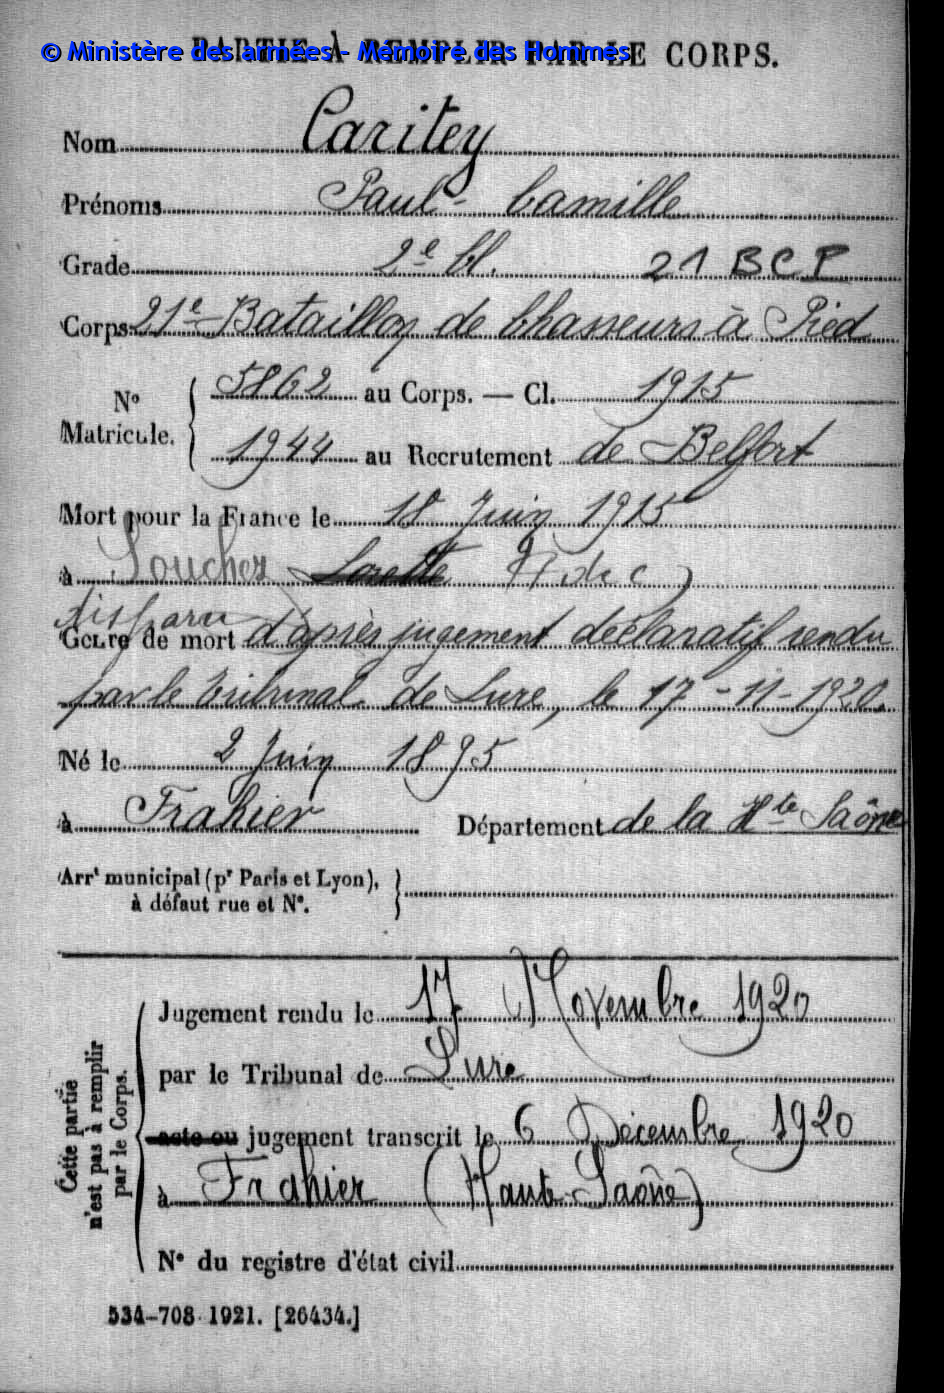 PARTIE À REMPLIR PAR LE CORPS.
© Ministère des armées - Mémoire des Hommes
Nom Caritey
Prénoms Paul - Camille
Grade 2e Cl. 21 BCP
Corps 21e Bataillon de Chasseurs à Pied
No Matricule. { 5862 au Corps. — Cl. 1915
1944 au Recrutement de Belfort
Mort pour la France le 18 Juin 1915
à Souchez Lorette P de C
disparu
Genre de mort d'après jugement déclaratif rendu
par le tribunal de Lure, le 17-11-1920.
Né le 2 Juin 1895
à Frahier Département de la Hte Saône
Arrt municipal (pr Paris et Lyon), }
à défaut rue et No.
Cette partie n'est pas à remplir par le Corps.
Jugement rendu le 17 Novembre 1920
par le Tribunal de Lure
acte ou jugement transcrit le 6 Décembre 1920
à Frahier (Haute-Saône)
No du registre d'état civil
534-708 1921. [26434.]